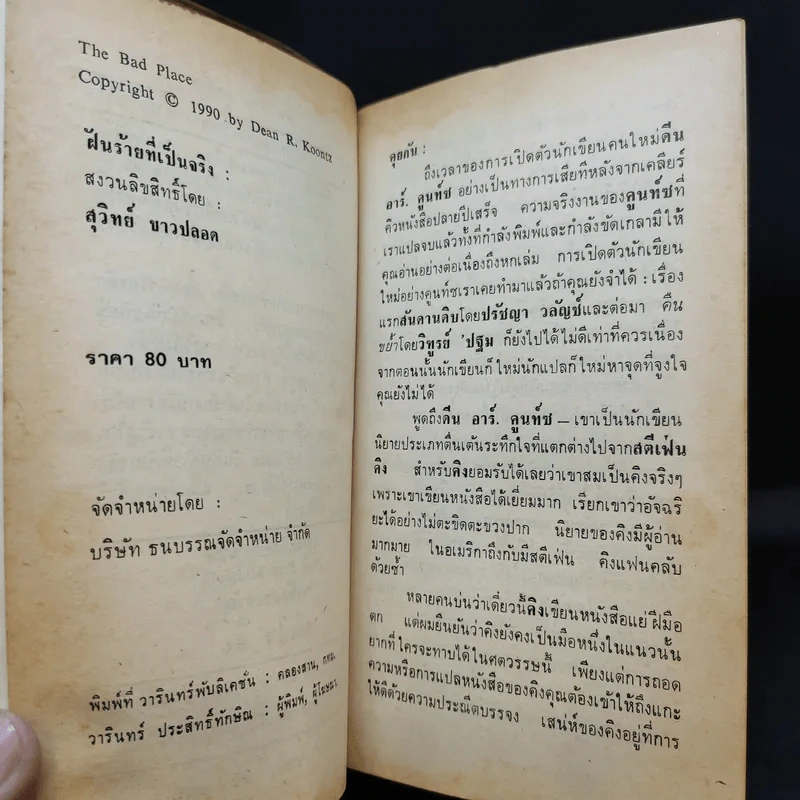 The Bad Place
Copyright © 1990 by Dean R. Koontz
ฝันร้ายที่เป็นจริง :
สงวนลิขสิทธิ์โดย :
สุวิทย์ ขาวปลอด
ราคา 80 บาท
จัดจำหน่ายโดย :
บริษัท ธนบรรณจัดจำหน่าย จำกัด
พิมพ์ที่ วารินทร์พับลิเคชั่น : คลองสาน, กทม.
วารินทร์ ประสิทธิ์ทักษิณ : ผู้พิมพ์, ผู้โฆษณา
คุยกัน :
ถึงเวลาของการเปิดตัวนักเขียนคนใหม่ดีน
อาร์. คูนท์ซ อย่างเป็นทางการเสียทีหลังจากเคลียร์
คิวหนังสือปลายปีเสร็จ ความจริงงานของคูนท์ซที่
เราแปลจบแล้วทั้งที่กำลังพิมพ์และกำลังขัดเกลามีให้
คุณอ่านอย่างต่อเนื่องถึงหกเล่ม การเปิดตัวนักเขียน
ใหม่อย่างคูนท์ซเราเคยทำมาแล้วถ้าคุณยังจำได้ : เรื่อง
แรกสันดานดิบโดยปรัชญา วลัญช์และต่อมา คืน
ขย้ำโดยวิฑูรย์ 'ปฐม ก็ยังไปได้ไม่ดีเท่าที่ควรเนื่อง
จากตอนนั้นนักเขียนก็ใหม่นักแปลก็ใหม่หาจุดที่จูงใจ
คุณยังไม่ได้
พูดถึงดีน อาร์. คูนท์ซ — เขาเป็นนักเขียน
นิยายประเภทตื่นเต้นระทึกใจที่แตกต่างไปจากสตีเฟ่น
คิง สำหรับคิงยอมรับได้เลยว่าเขาสมเป็นคิงจริงๆ
เพราะเขาเขียนหนังสือได้เยี่ยมมาก เรียกเขาว่าอัจฉริ
ยะได้อย่างไม่ตะขิดตะขวงปาก นิยายของคิงมีผู้อ่าน
มากมาย ในอเมริกาถึงกับมีสตีเฟ่น คิงแฟนคลับ
ด้วยซ้ำ
หลายคนบ่นว่าเดี่ยวนี้คิงเขียนหนังสือแย่ ฝีมือ
ตก แต่ผมยืนยันว่าคิงยังคงเป็นมือหนึ่งในแนวนั้น
ยากที่ใครจะทาบได้ในศตวรรษนี้ เพียงแต่การถอด
ความหรือการแปลหนังสือของคิงคุณต้องเข้าให้ถึงแกะ
ให้ดีด้วยความประณีตบรรจง เสน่ห์ของคิงอยู่ที่การ